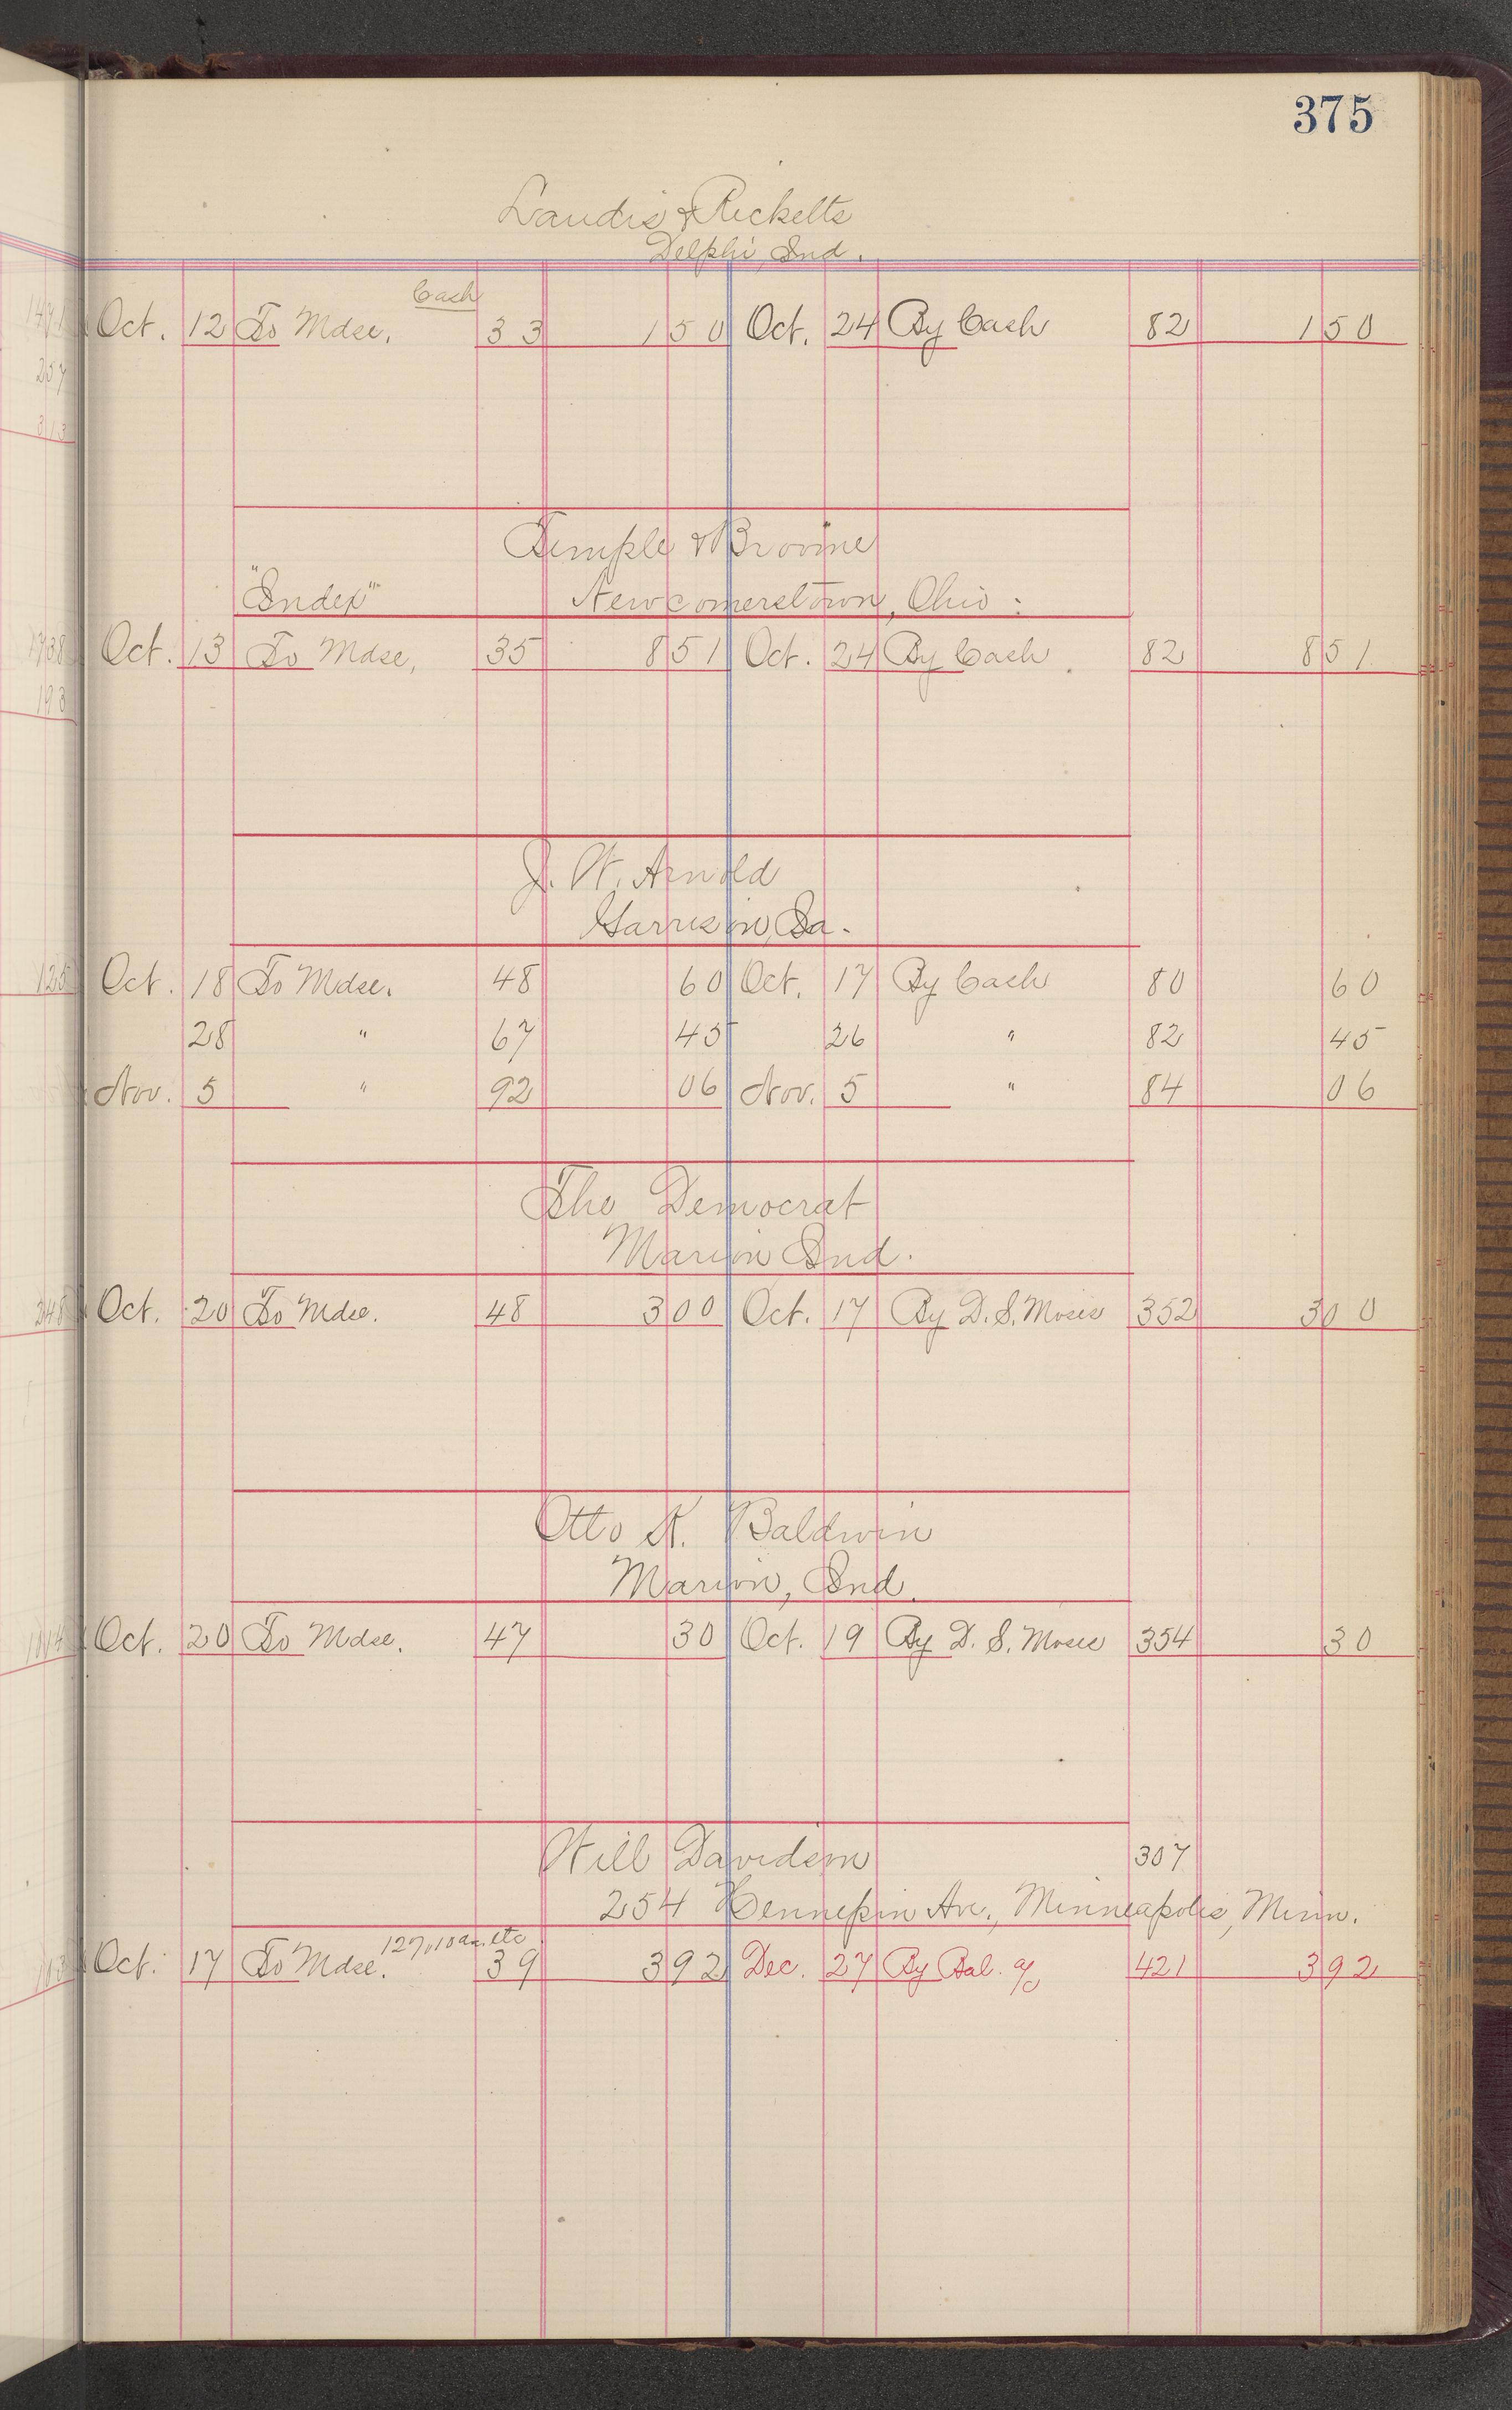 375
Landis & Ricketts
Delphi, Ind.
Cash
Oct. 12 To Mdse. 33 1 50 Oct. 24 By Cash 82 1 50
Temple & Broome
"Index" Newcomerstown, Ohio:
Oct. 13 To Mdse. 35 8 51 Oct. 24 By Cash. 82 8 51
J. W. Arnold
Garrison, Ia.
Oct. 18 To Mdse. 48 60 Oct. 17 By Cash 80 60
28 " 67 45 26 " 82 45
Nov. 5 " 92 06 Nov. 5 " 84 06
The Democrat
Marion Ind.
Oct. 20 To Mdse. 48 3 00 Oct. 17 By D. S. Moses 352 3 00
Otto K. Baldwin
Marion, Ind.
Oct. 20 To Mdse. 47 30 Oct. 19 By D. S. Moses 354 30
Will Davidson 307
254 Hennepin Ave., Minneapolis, Minn.
etc
Oct. 17 To Mdse. 39 3 92 Dec. 27 By Bal. a/c 421 3 92